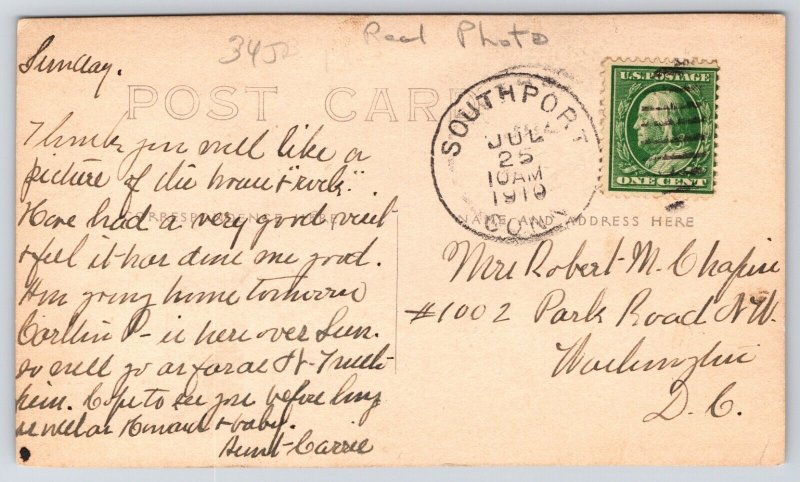 3452
Real Photo
Sunday.
POST CARD
U.S. POSTAGE
ONE CENT
SOUTHPORT
JUL
25
10AM
1910
CONN
CORRESPONDENCE HERE
NAME AND ADDRESS HERE
Think you will like a
picture of the house & "rock".
Have had a very good visit
& feel it has done me good.
Am going home tomorrow
P- is here over Sun.
so will go as far as with
him. Hope to see you before long
as well as & baby.
Aunt Carrie
Mrs Robert M. Chapin
#1002 Park Road N.W.
Washington
D. C.